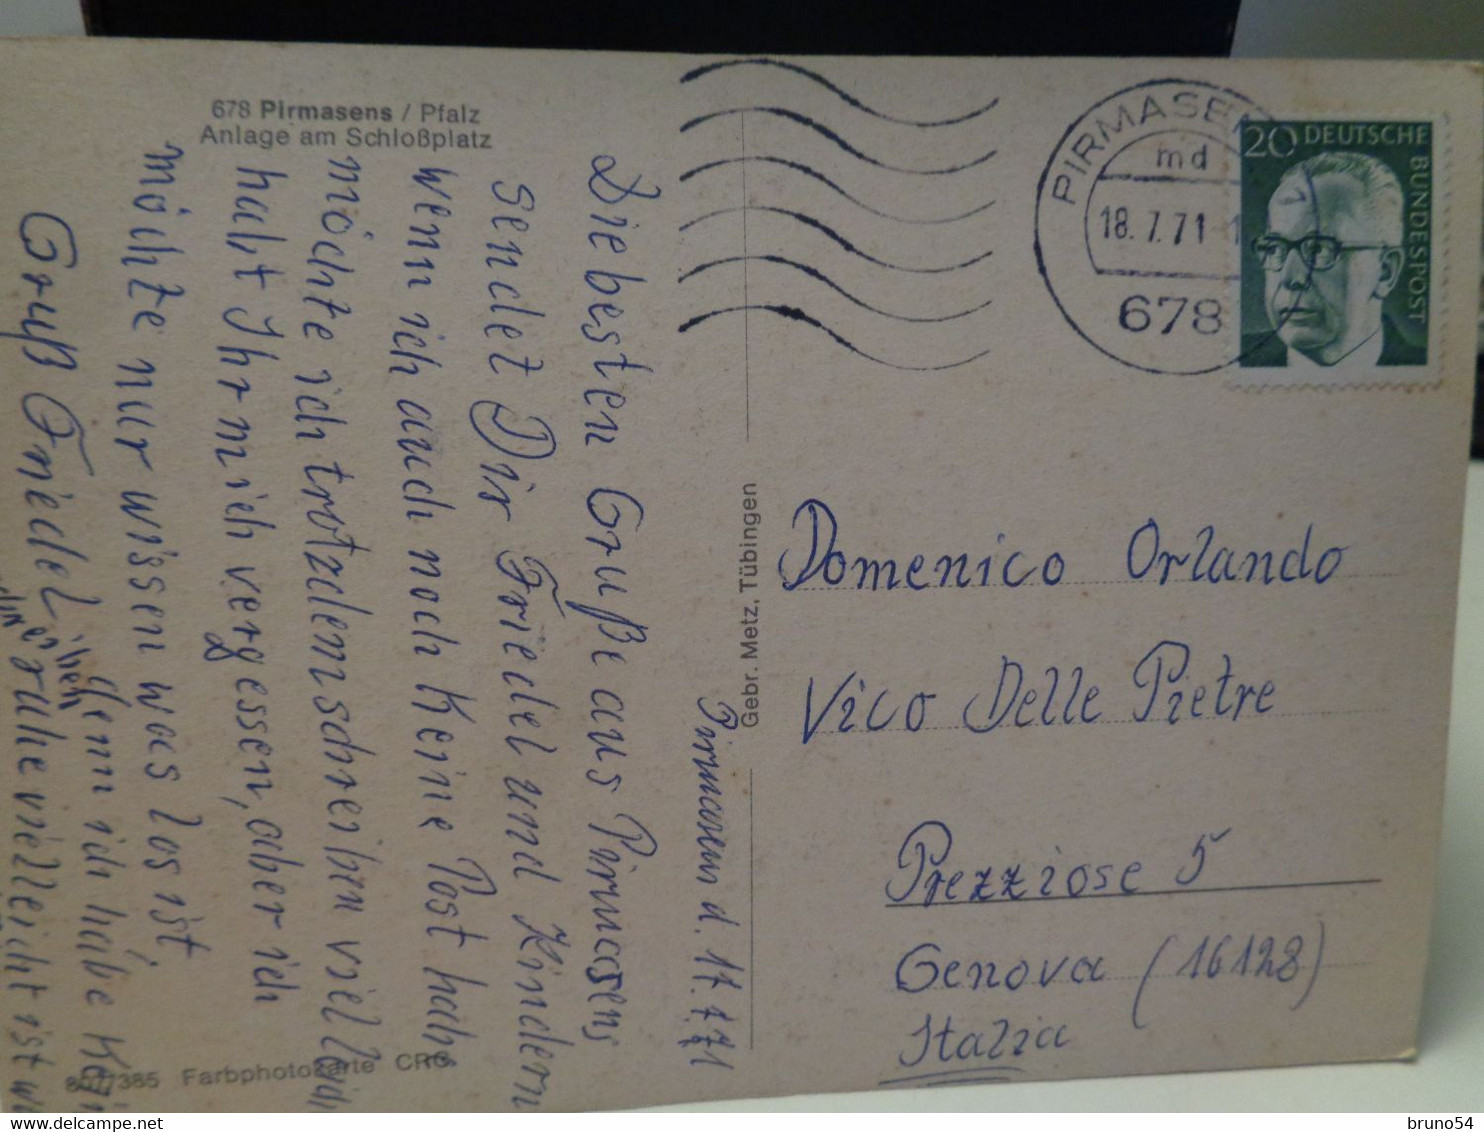 678 Pirmasens / Pfalz
Anlage am Schloßplatz
Pirmasens d. 17.7.71
Die besten Gruße aus Pirmasens
sendet Dir Friedel und Kindern
wenn ich auch noch Keine Post habe
möchte ich trotzdem schreiben vielleicht
habt Ihr mich vergessen, aber ich
möchte nur wissen was los ist,
denn ich habe Kei
ruhe vielleicht ist
Gruß Friedel
8077385 Farbphotokarte CRG
Gebr. Metz, Tübingen
PIRMASENS 1
md
18.7.71
678
20 DEUTSCHE
BUNDESPOST
Domenico Orlando
Vico Delle Pietre
Prezziose 5
Genova (16128)
Italia
bruno54